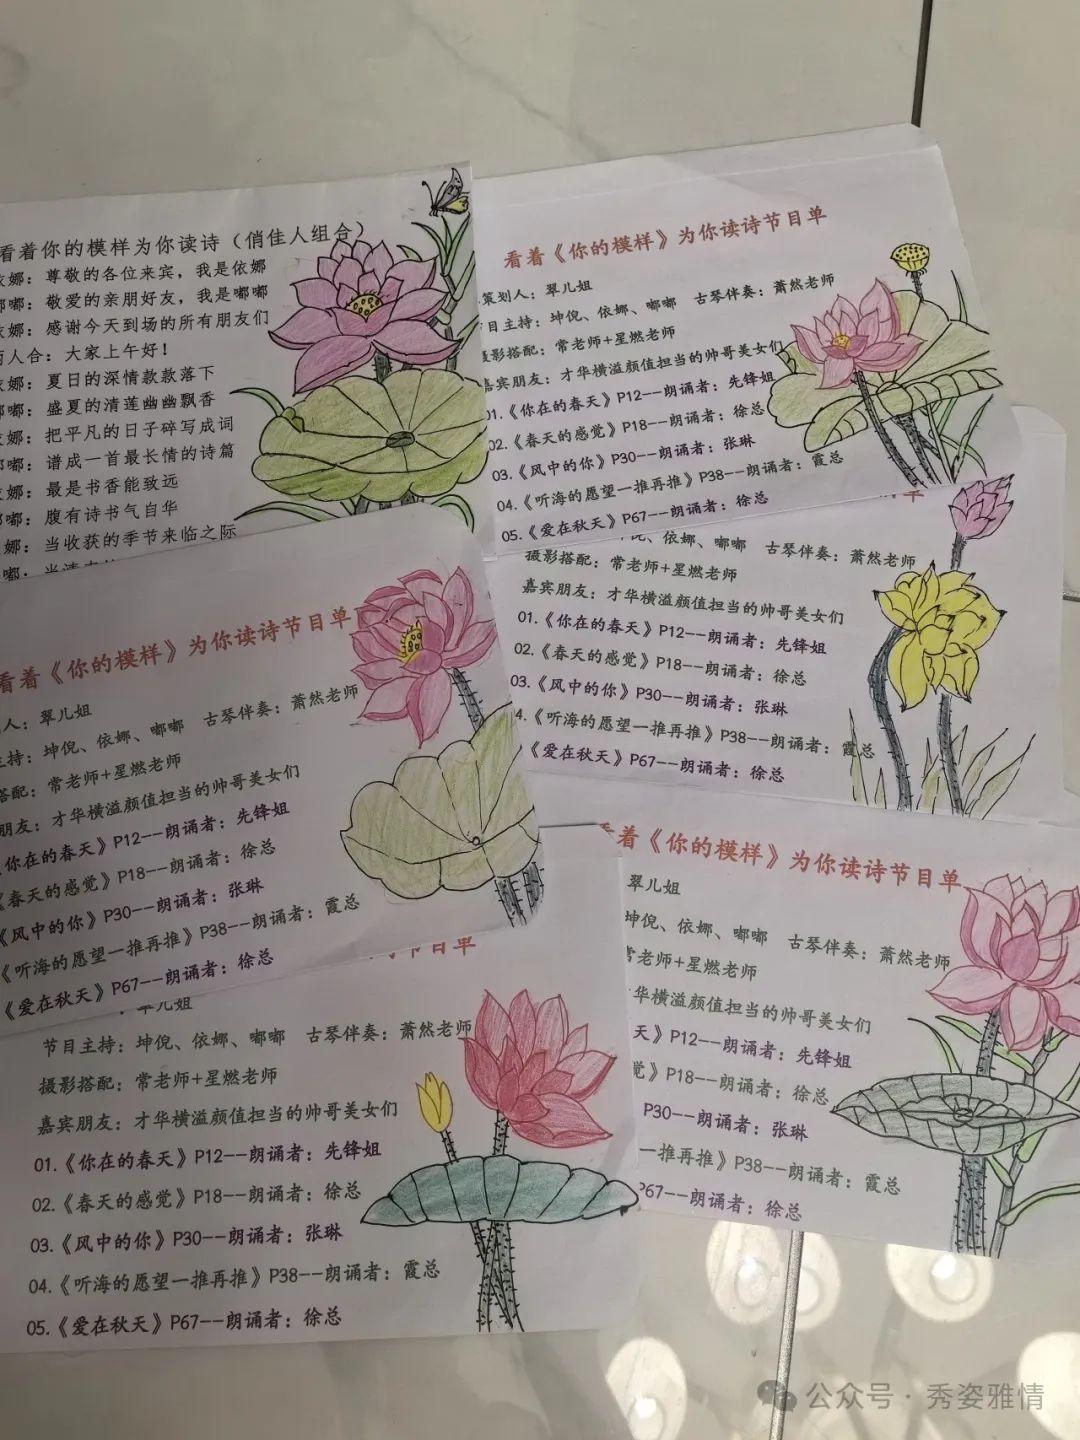 看着你的模样为你读诗（俏佳人组合）
依娜：尊敬的各位来宾，我是依娜
嘟嘟：敬爱的亲朋好友，我是嘟嘟
依娜：感谢今天到场的所有朋友们
两人合：大家上午好！
依娜：夏日的深情款款落下
嘟嘟：盛夏的清莲幽幽飘香
依娜：把平凡的日子碎写成词
嘟嘟：谱成一首最长情的诗篇
依娜：最是书香能致远
嘟嘟：腹有诗书气自华
娜：当收获的季节来临之际
嘟：
看着《你的模样》为你读诗节目单
策划人：翠儿姐
节目主持：坤倪、依娜、嘟嘟 古琴伴奏：萧然老师
摄影搭配：常老师+星燃老师
嘉宾朋友：才华横溢颜值担当的帅哥美女们
01.《你在的春天》P12--朗诵者：先锋姐
02.《春天的感觉》P18--朗诵者：徐总
03.《风中的你》P30--朗诵者：张琳
04.《听海的愿望一推再推》P38--朗诵者：霞总
05.《爱在秋天》P67--朗诵者：徐总
倪、依娜、嘟嘟 古琴伴奏：萧然老师
摄影搭配：常老师+星燃老师
嘉宾朋友：才华横溢颜值担当的帅哥美女们
01.《你在的春天》P12--朗诵者：先锋姐
02.《春天的感觉》P18--朗诵者：徐总
03.《风中的你》P30--朗诵者：张琳
4.《听海的愿望一推再推》P38--朗诵者：霞总
《爱在秋天》P67--朗诵者：徐总
看着《你的模样》为你读诗节目单
人：翠儿姐
主持：坤倪、依娜、嘟嘟 古琴伴奏：萧然老师
搭配：常老师+星燃老师
朋友：才华横溢颜值担当的帅哥美女们
《你在的春天》P12--朗诵者：先锋姐
《春天的感觉》P18--朗诵者：徐总
《风中的你》P30--朗诵者：张琳
《听海的愿望一推再推》P38--朗诵者：霞总
《爱在秋天》P67--朗诵者：徐总
看着《你的模样》为你读诗节目单
翠儿姐
坤倪、依娜、嘟嘟 古琴伴奏：萧然老师
常老师+星燃老师
才华横溢颜值担当的帅哥美女们
天》P12--朗诵者：先锋姐
觉》P18--朗诵者：徐总
P30--朗诵者：张琳
一推再推》P38--朗诵者：霞总
P67--朗诵者：徐总
节目单
翠儿姐
节目主持：坤倪、依娜、嘟嘟 古琴伴奏：萧然老师
摄影搭配：常老师+星燃老师
嘉宾朋友：才华横溢颜值担当的帅哥美女们
01.《你在的春天》P12--朗诵者：先锋姐
02.《春天的感觉》P18--朗诵者：徐总
03.《风中的你》P30--朗诵者：张琳
04.《听海的愿望一推再推》P38--朗诵者：霞总
05.《爱在秋天》P67--朗诵者：徐总
公众号·秀姿雅情